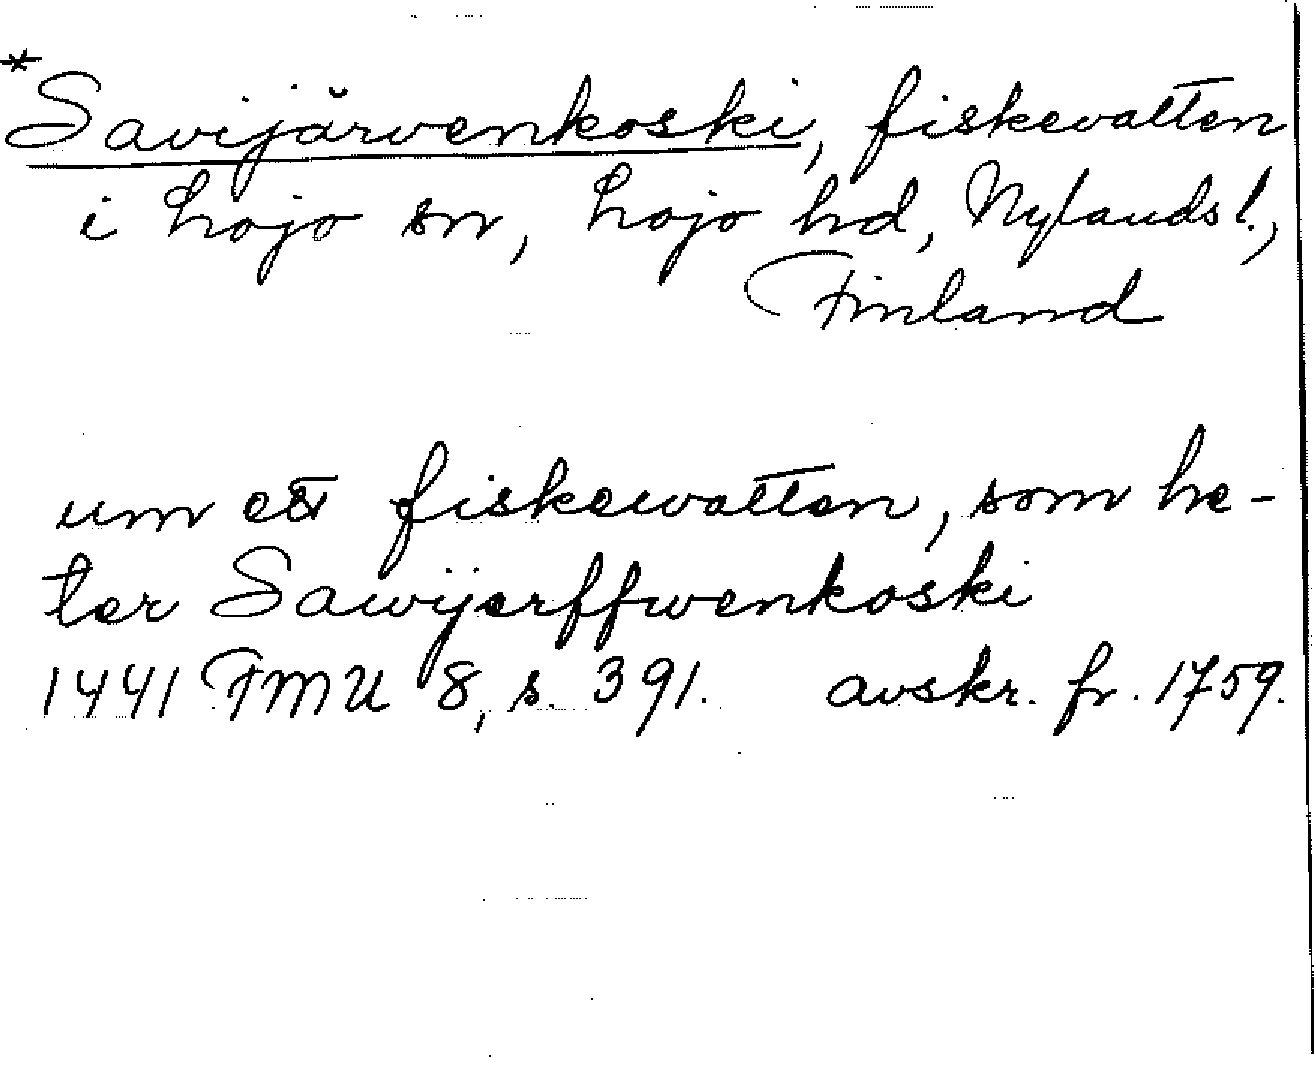 *Savijärvenkoski, fiskevatten
i Lojo sn, Lojo hd, Nylands l.,
Finland
um ett fiskewatten, som he-
ter Sawijerffwenkoski
1441 FMU 8, s. 391. avskr. fr. 1759.